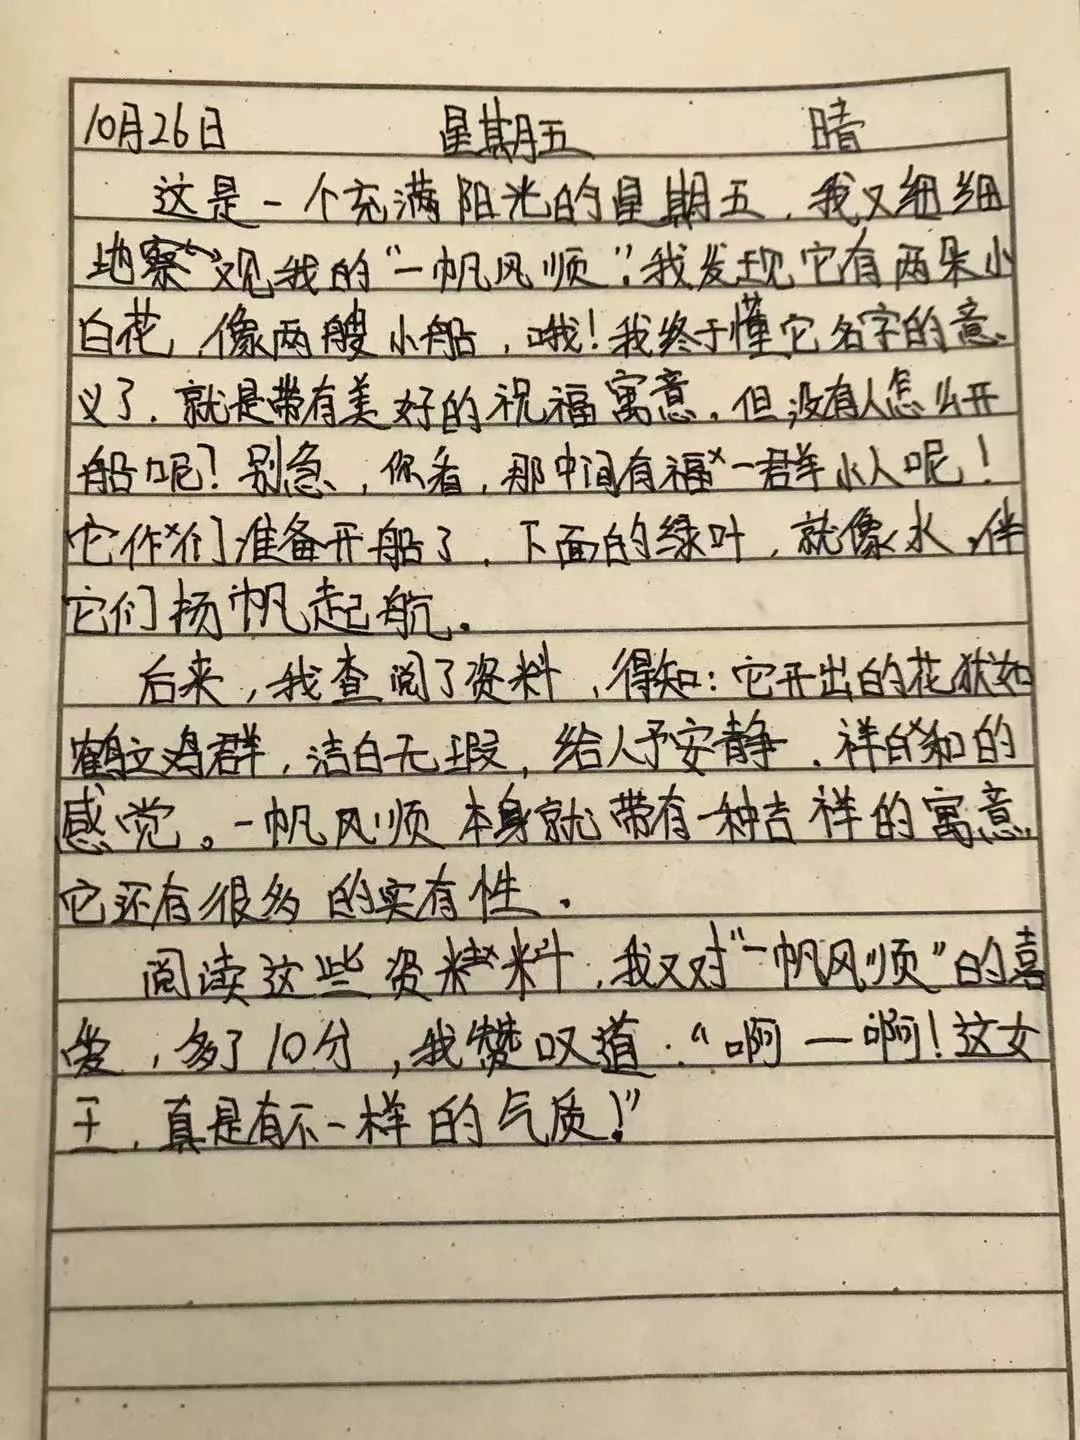 10月26日 星期五 晴
这是一个充满阳光的星期五，我又细细
地察观我的“一帆风顺”，我发现它有两朵小
白花，像两艘小船，哦！我终于懂它名字的意
义了，就是带有美好的祝福寓意。但没有人怎么开
船呢？别急，你看，那中间有福一群小人呢！
它作们准备开船了，下面的绿叶，就像水，伴
它们扬帆起航。
后来，我查阅了资料，得知：它开出的花犹如
鹤立鸡群，洁白无瑕，给人予安静、祥和的
感觉。一帆风顺本身就带有一种吉祥的寓意，
它还有很多的实有性。
阅读这些资料，我又对“一帆风顺”的喜
爱，多了10分，我赞叹道：“啊—啊！这女
王，真是有不一样的气质！”